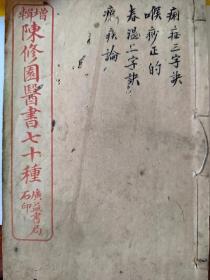 增輯
陳修園醫書七十種
廣益書局
石印
痢症三字訣
喉痧正的
春溫三字訣
瘧疾論